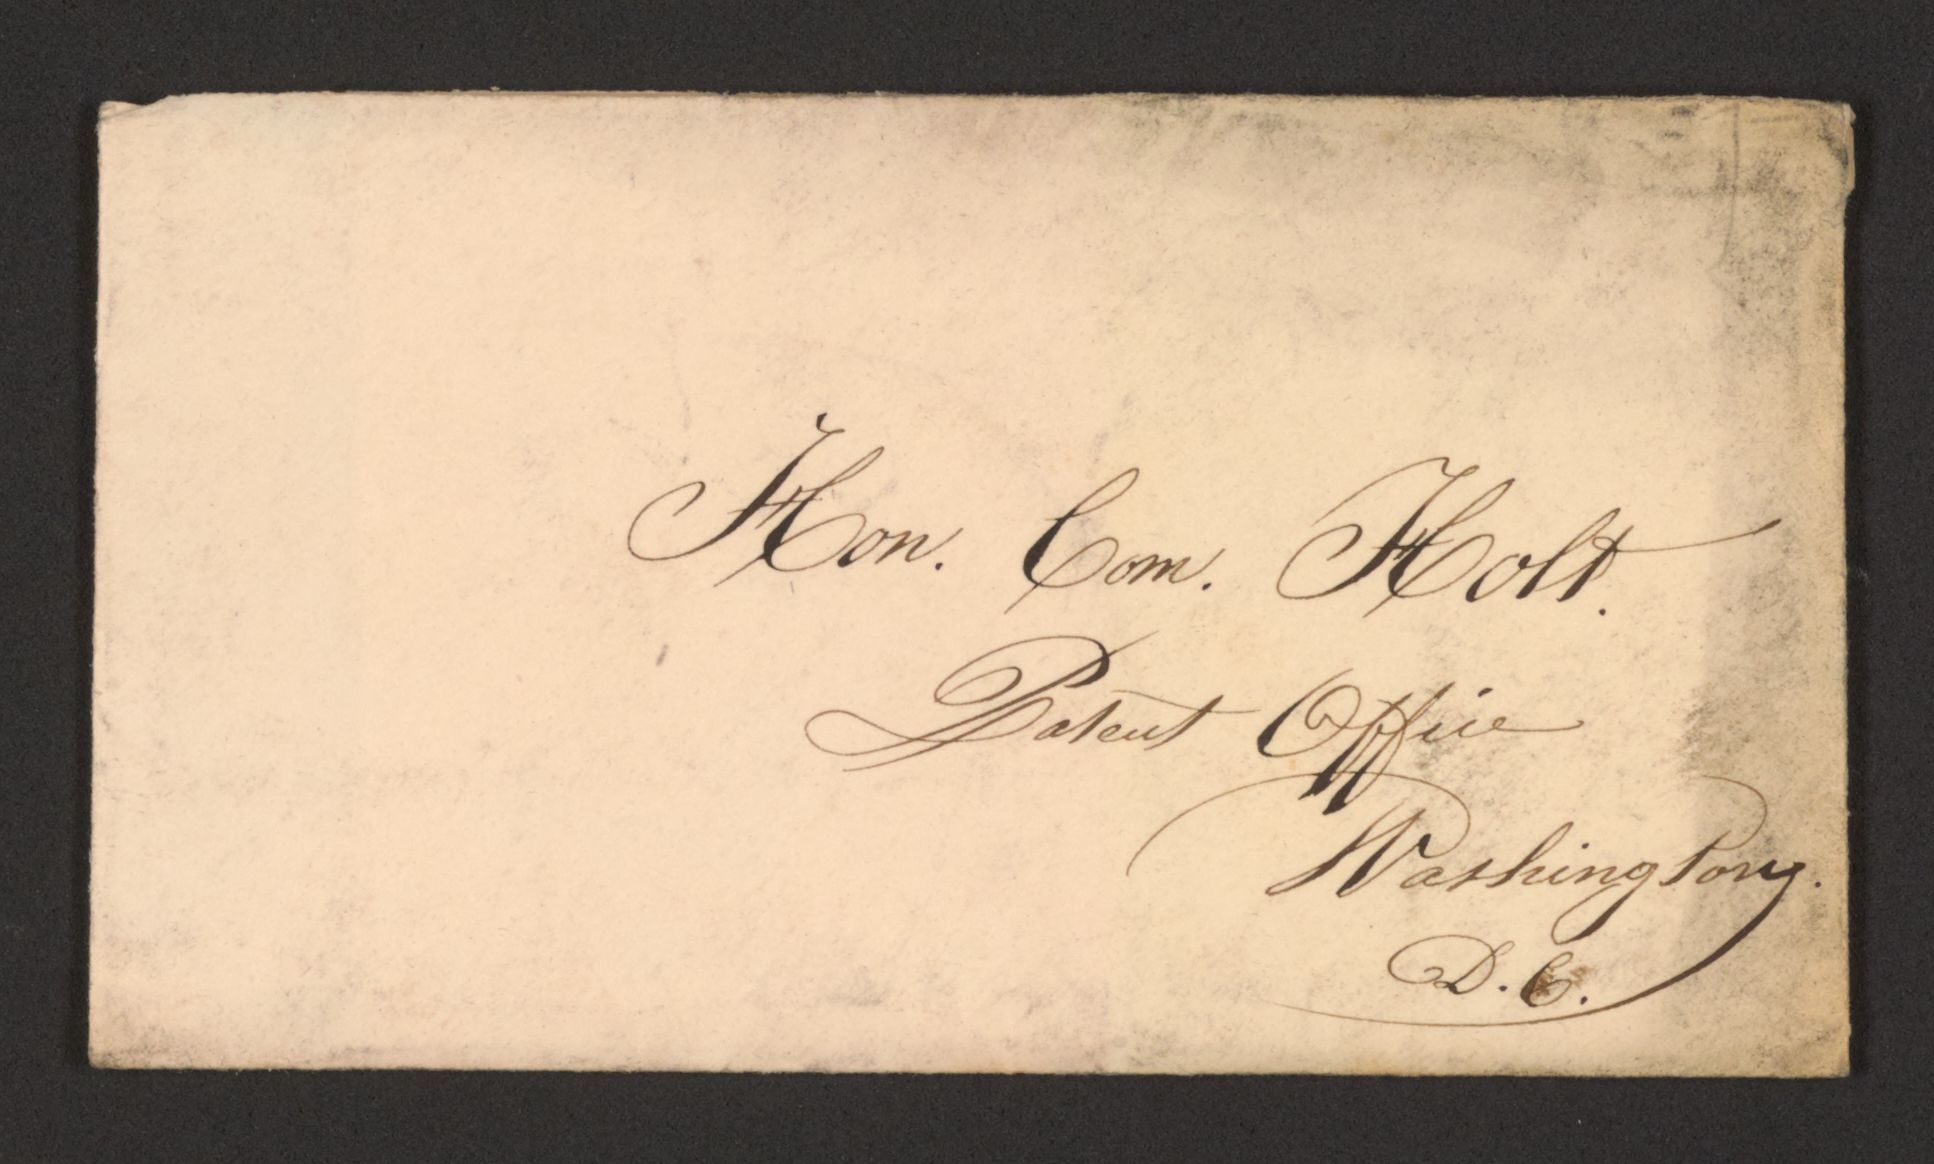 Hon. Com. Holt.
Patent Office
Washington.
D. C.